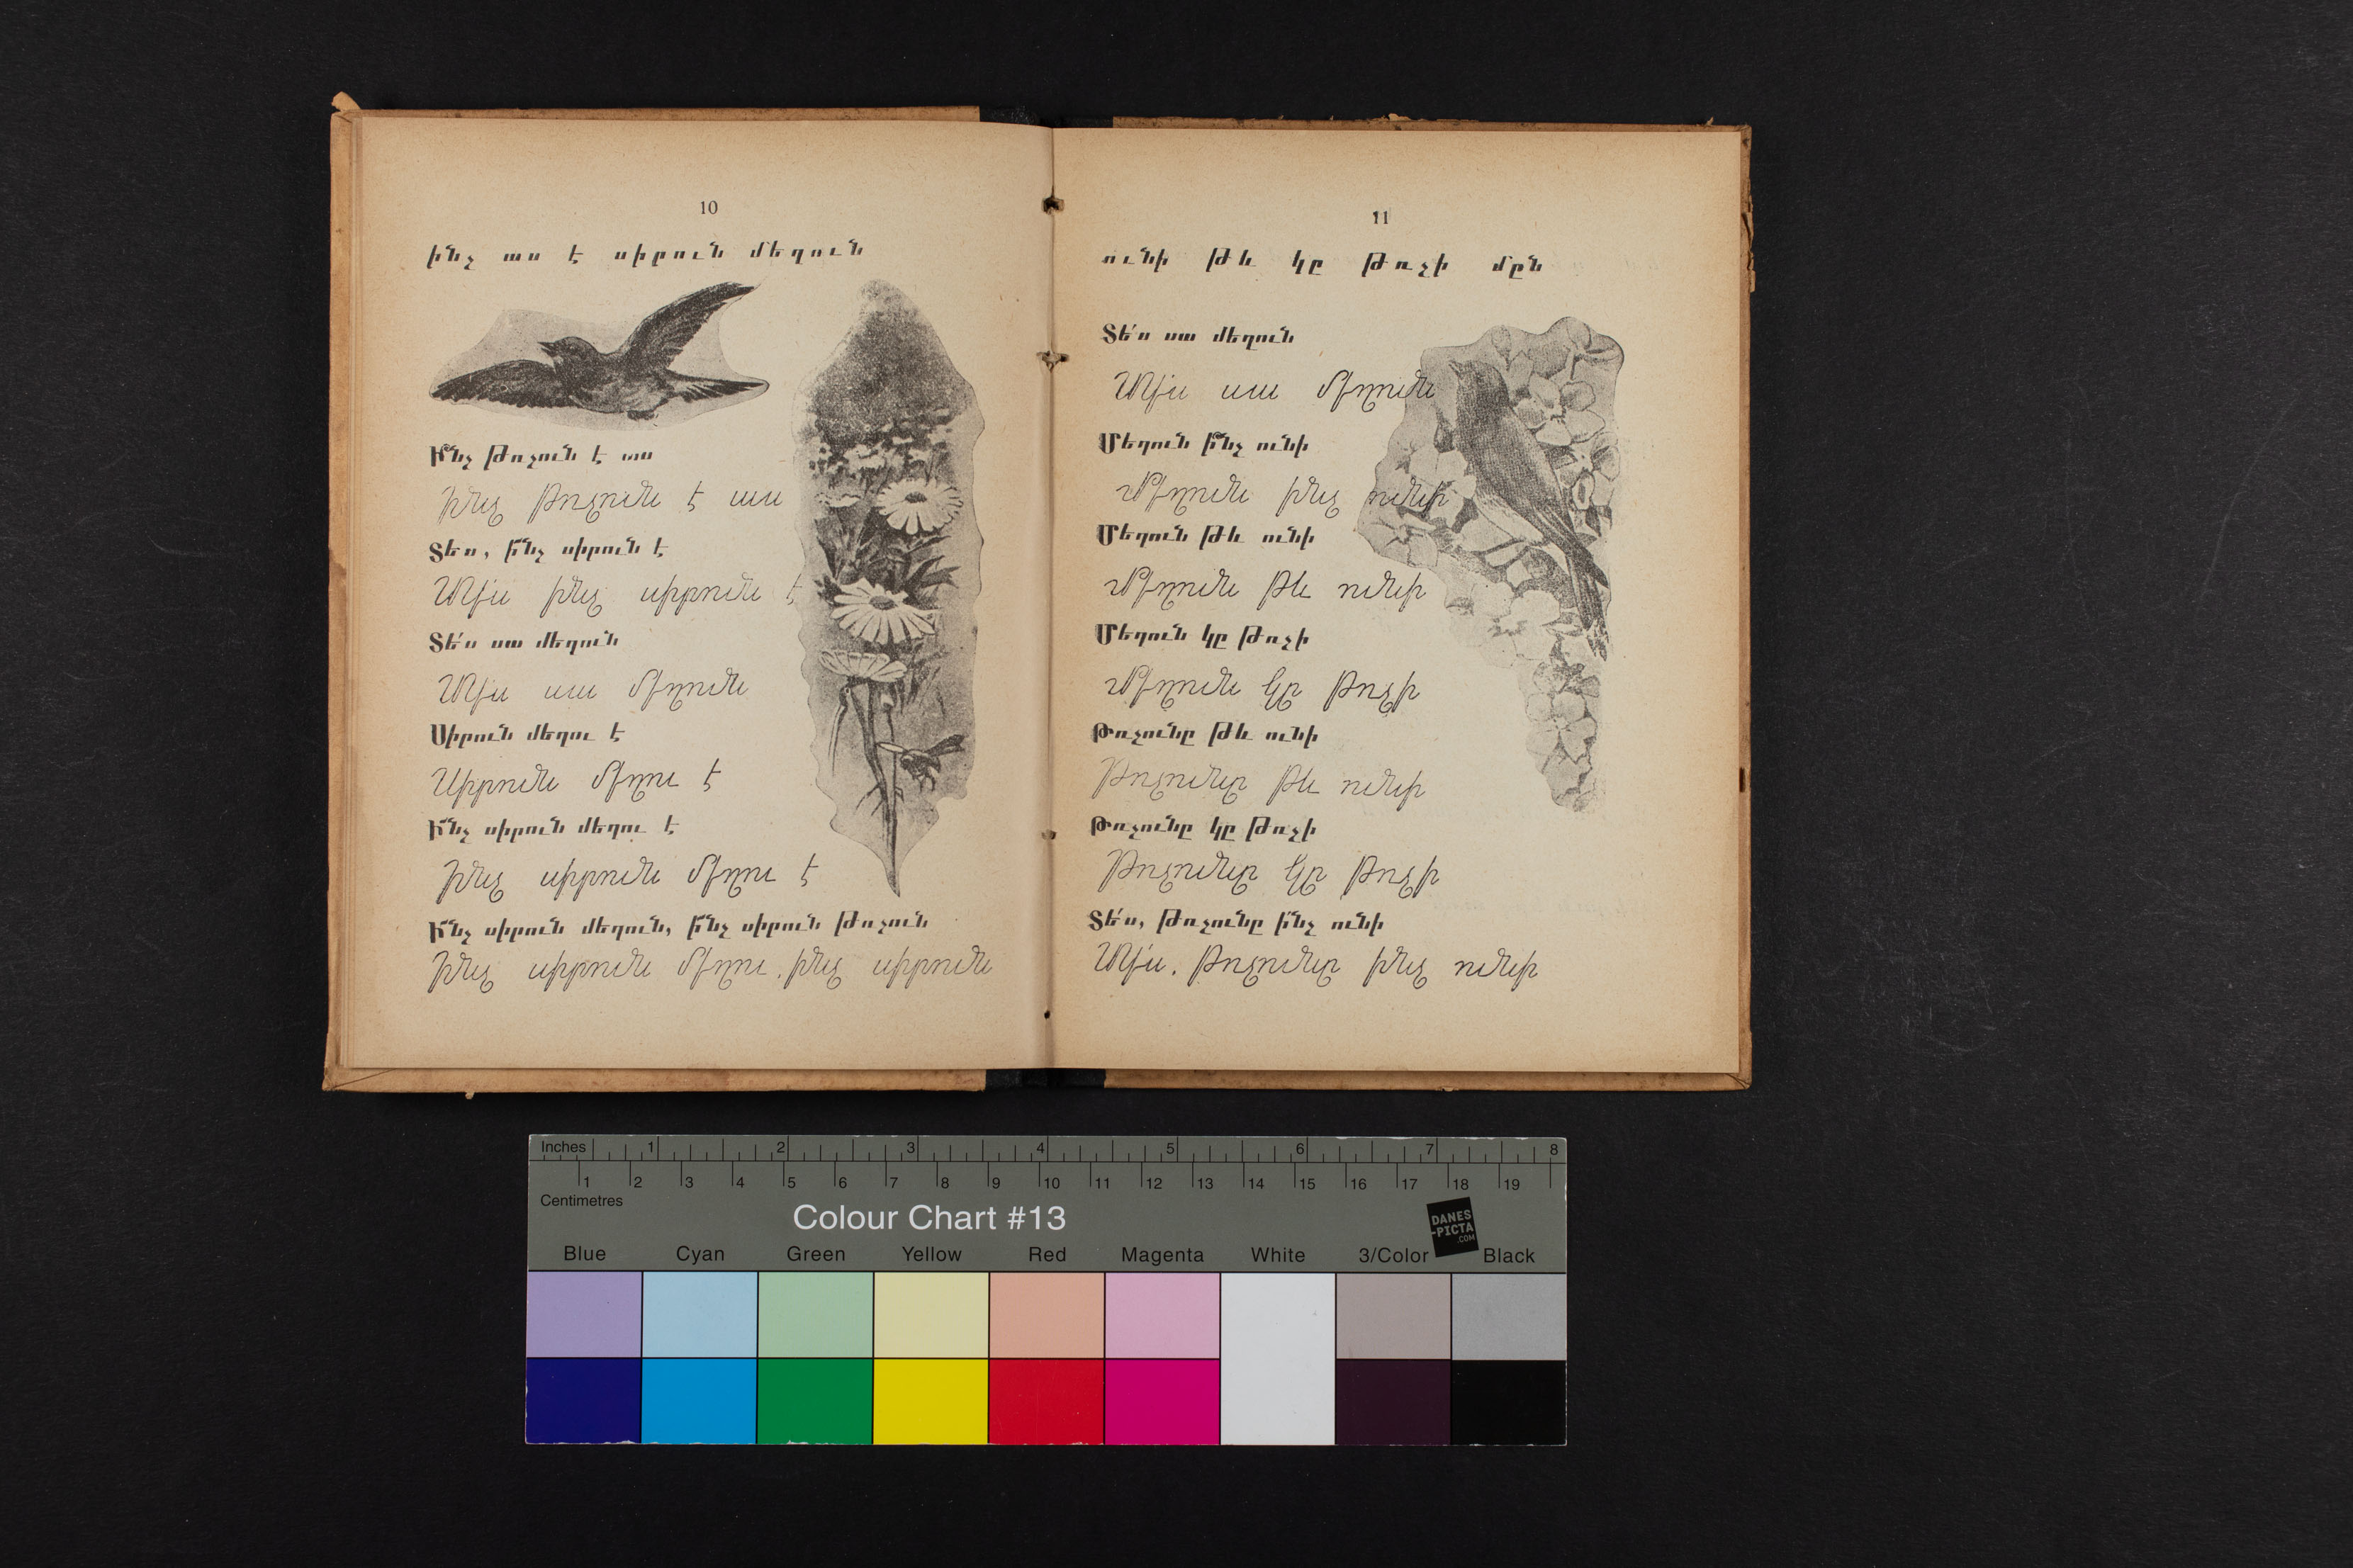 10
ինչ աս է սիրուն մեղուն
Ի՞նչ թռչուն է աս
Ինչ թռչուն է աս
Տես, ի՜նչ սիրուն է
Տե՛ս ինչ սիրուն է
Տե՛ս սա մեղուն
Տե՛ս սա մեղուն
Սիրուն մեղու է
Սիրուն մեղու է
Ի՜նչ սիրուն մեղու է
Ինչ սիրուն մեղու է
Ի՜նչ սիրուն մեղուն, ի՜նչ սիրուն թռչուն
Ինչ սիրուն մեղու, ինչ սիրուն
11
ունի թև կը թռչի մըն
Տե՛ս սա մեղուն
Տե՛ս սա մեղուն
Մեղուն ի՞նչ ունի
Մեղուն ինչ ունի
Մեղուն թև ունի
Մեղուն թև ունի
Մեղուն կը թռչի
Մեղուն կը թռչի
Թռչունը թև ունի
Թռչունը թև ունի
Թռչունը կը թռչի
Թռչունը կը թռչի
Տե՛ս, թռչունը ի՞նչ ունի
Տե՛ս, թռչունը ինչ ունի
Inches 1 2 3 4 5 6 7 8
1 2 3 4 5 6 7 8 9 10 11 12 13 14 15 16 17 18 19
Centimetres
Colour Chart #13
DANES
-PICTA
.COM
Blue Cyan Green Yellow Red Magenta White 3/Color Black